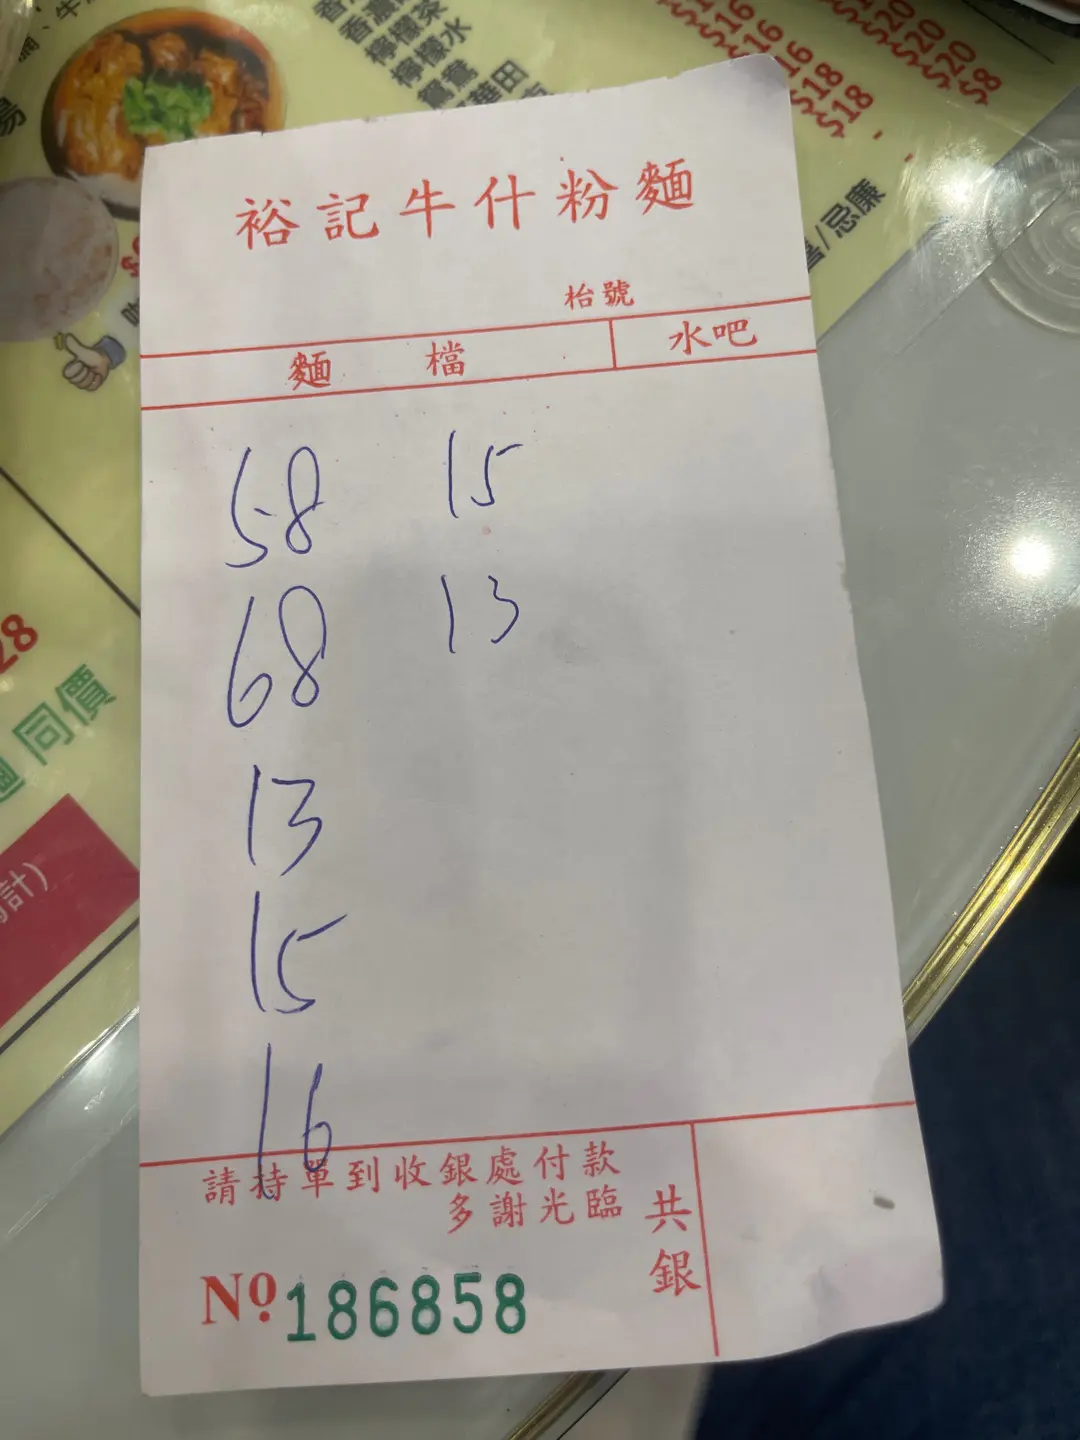 香濃
檸檬茶
檸檬水
鴛鴦
$16
$16
$16
$18
$18
$20
$20
$20
$8
忌廉
裕記牛什粉麵
枱號
麵 檔 水吧
58 15
68 13
13
15
16
28
同價
計)
請持單到收銀處付款
多謝光臨
共銀
Nº 186858